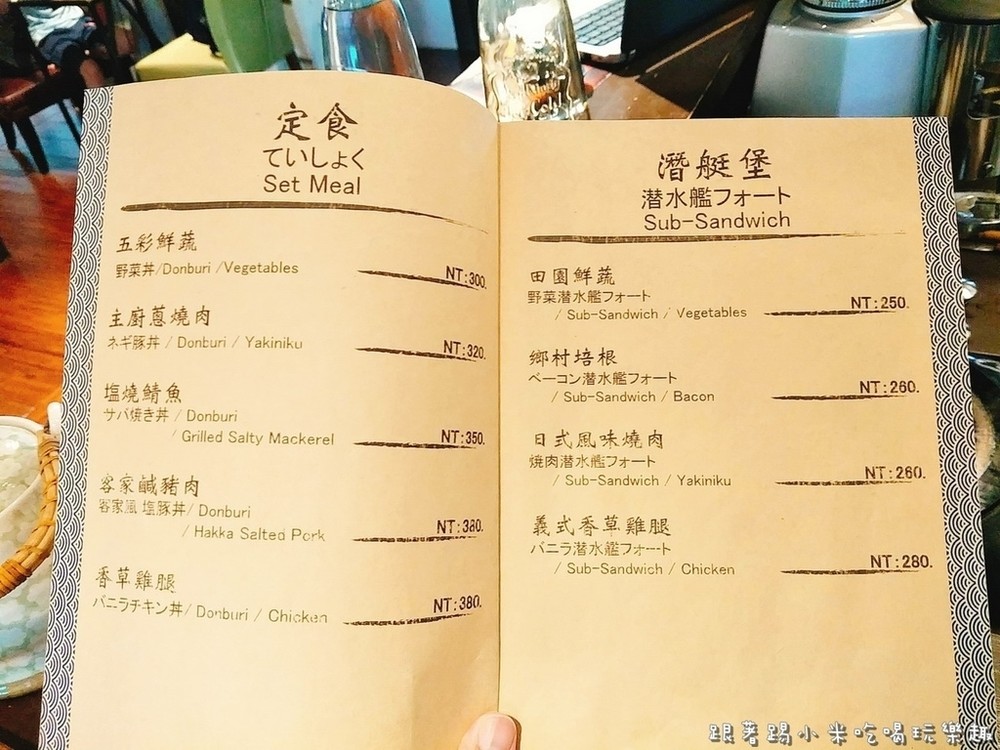 定食
ていしょく
Set Meal
五彩鮮蔬
野菜丼/Donburi /Vegetables
NT:300.
主廚蔥燒肉
ネギ豚丼 / Donburi / Yakiniku
NT:320.
塩燒鯖魚
サバ焼き丼 / Donburi
/ Grilled Salty Mackerel
NT:350.
客家鹹豬肉
客家風 塩豚丼/ Donburi
/ Hakka Salted Pork
NT:380.
香草雞腿
バニラチキン丼/ Donburi / Chicken
NT:380.
潛艇堡
潜水艦フォート
Sub-Sandwich
田園鮮蔬
野菜潜水艦フォート
/ Sub-Sandwich / Vegetables
NT:250.
鄉村培根
ベーコン潜水艦フォート
/ Sub-Sandwich / Bacon
NT:260.
日式風味燒肉
焼肉潜水艦フォート
/ Sub-Sandwich / Yakiniku
NT:260.
義式香草雞腿
バニラ潜水艦フォート
/ Sub-Sandwich / Chicken
NT:280.
跟著踢小米吃喝玩樂趣